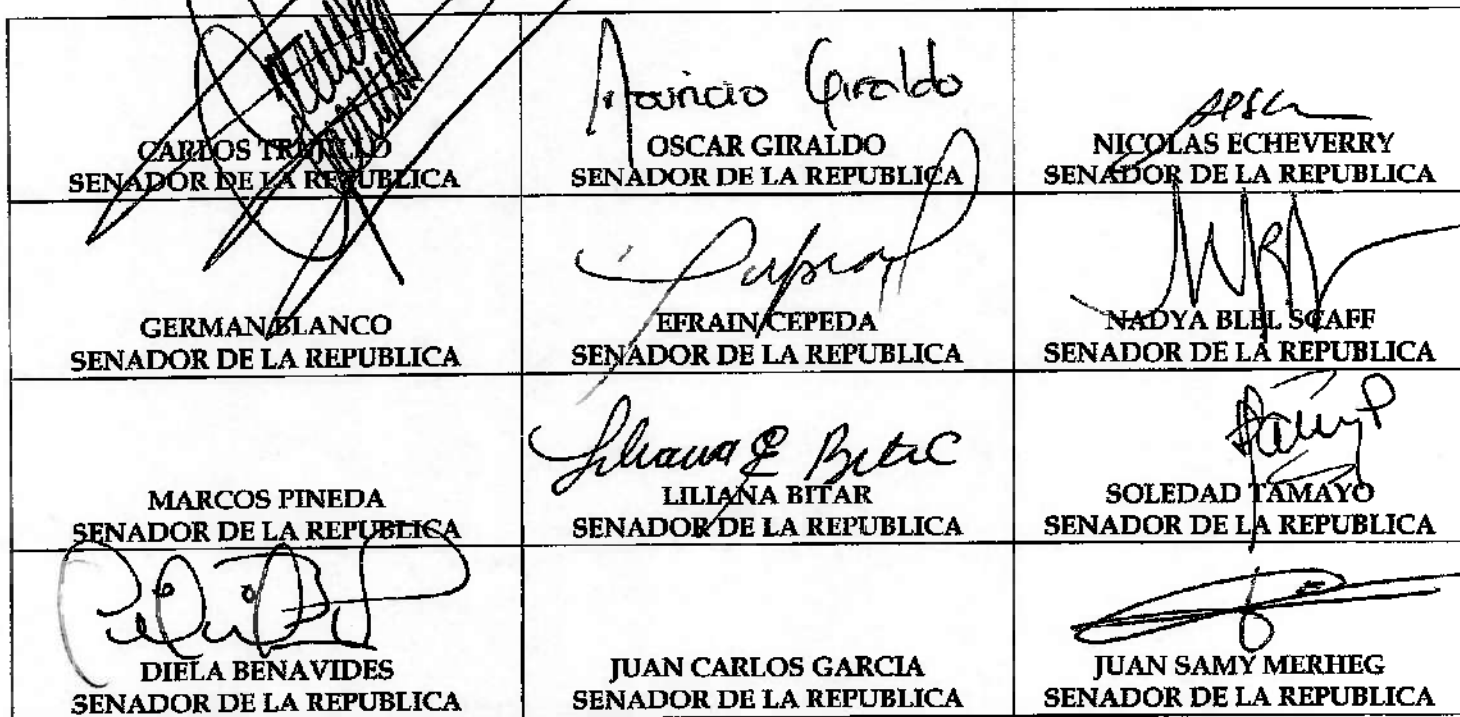 Mauricio Giraldo
CARLOS TRUJILLO
SENADOR DE LA REPUBLICA
OSCAR GIRALDO
SENADOR DE LA REPUBLICA
NICOLAS ECHEVERRY
SENADOR DE LA REPUBLICA
GERMAN BLANCO
SENADOR DE LA REPUBLICA
EFRAIN CEPEDA
SENADOR DE LA REPUBLICA
NADYA BLEL SCAFF
SENADOR DE LA REPUBLICA
Liliana Bitar C
MARCOS PINEDA
SENADOR DE LA REPUBLICA
LILIANA BITAR
SENADOR DE LA REPUBLICA
SOLEDAD TAMAYO
SENADOR DE LA REPUBLICA
DIELA BENAVIDES
SENADOR DE LA REPUBLICA
JUAN CARLOS GARCIA
SENADOR DE LA REPUBLICA
JUAN SAMY MERHEG
SENADOR DE LA REPUBLICA